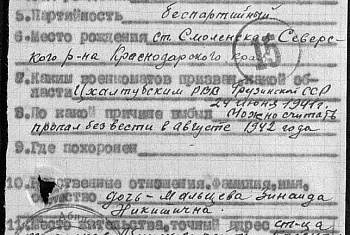 5.Партийность беспартийный
6.Место рождения ст. Смоленская Северс-
кого р-на Краснодарского края
15
7.Каким военкоматом призван, какой об-
ласти Цхалтубским РВК Грузинской ССР
24 июня 1941г.
8.По какой причине выбыл Можно считать
пропал без вести в августе 1942 года
9.Где похоронен
10. родственные отношения, фамилия, имя,
отчество дочь - Мальцева Зинаида
Никишична
11.Место жительства, точный адрес ст-ца